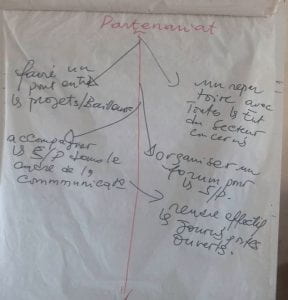 Partenariat
faire un
pont entre
les projets/Bailleurs
un réper
toire avec
toutes les Ent
du secteur
concerné
accompagner
les E/P dans le
cadre de la
communicat°
organiser un
forum pour
les S/P.
rendre effectif
les journées portes
ouvertes.